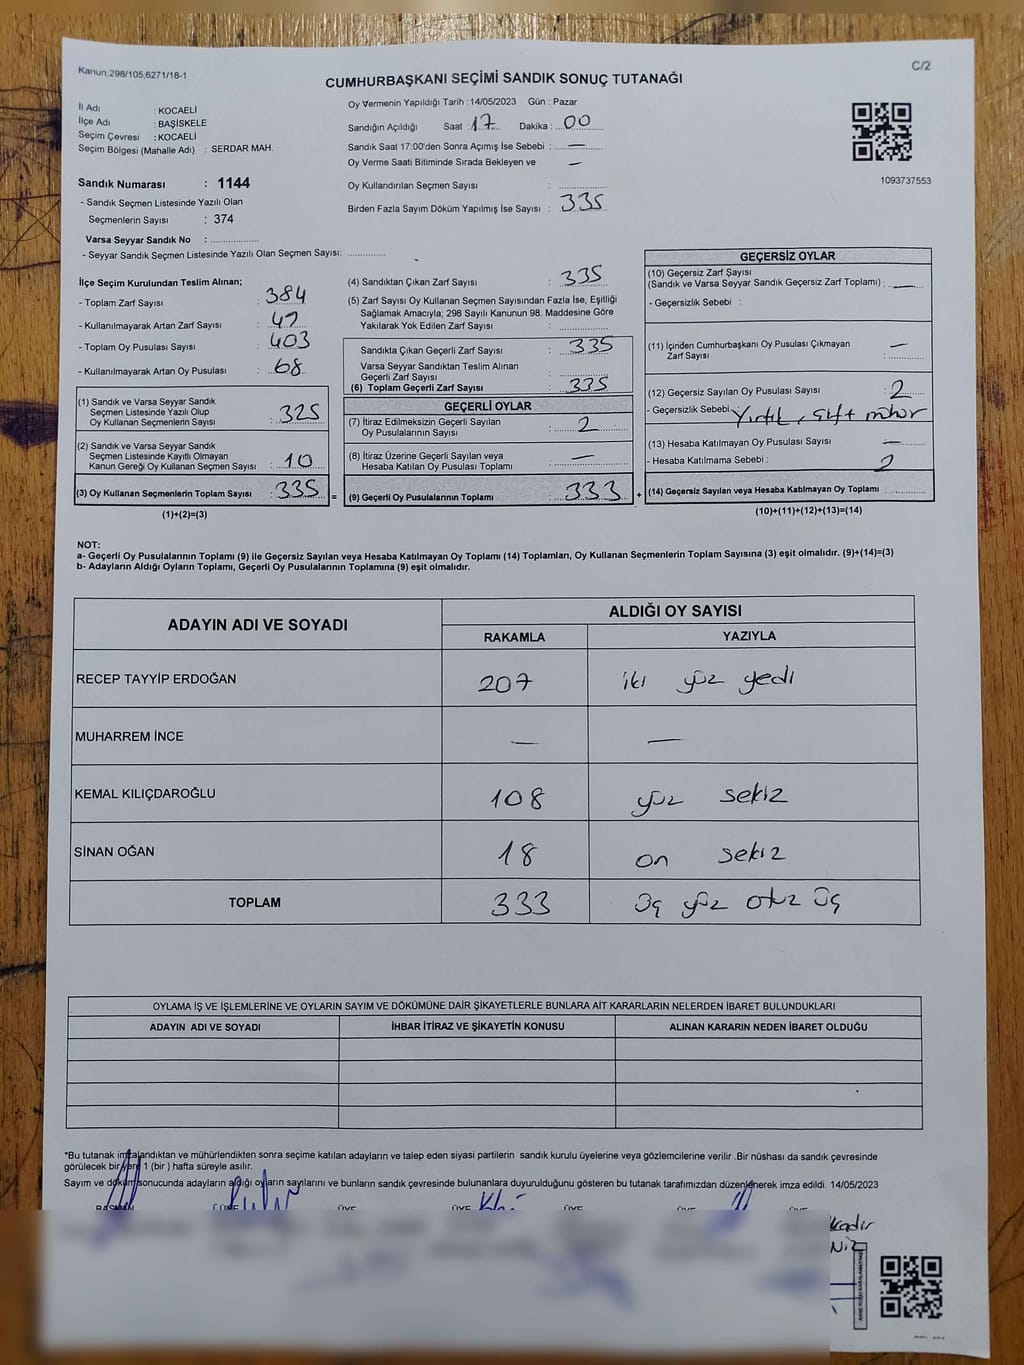 Kanun,298/105,6271/18-1
C/2
CUMHURBAŞKANI SEÇİMİ SANDIK SONUÇ TUTANAĞI
İl Adı : KOCAELİ
İlçe Adı : BAŞİSKELE
Seçim Çevresi : KOCAELİ
Seçim Bölgesi (Mahalle Adı) : SERDAR MAH.
Sandık Numarası : 1144
- Sandık Seçmen Listesinde Yazılı Olan
Seçmenlerin Sayısı : 374
Varsa Seyyar Sandık No : ..................
- Seyyar Sandık Seçmen Listesinde Yazılı Olan Seçmen Sayısı: .............
Oy Vermenin Yapıldığı Tarih : 14/05/2023 Gün : Pazar
Sandığın Açıldığı Saat : 17 Dakika : 00
Sandık Saat 17:00'den Sonra Açımış İse Sebebi : —
Oy Verme Saati Bitiminde Sırada Bekleyen ve —
Oy Kullandırılan Seçmen Sayısı : ..............
Birden Fazla Sayım Döküm Yapılmış İse Sayısı : 335
1093737553
İlçe Seçim Kurulundan Teslim Alınan;
- Toplam Zarf Sayısı : 384
- Kullanılmayarak Artan Zarf Sayısı : 49
- Toplam Oy Pusulası Sayısı : 403
- Kullanılmayarak Artan Oy Pusulası : 68
(1) Sandık ve Varsa Seyyar Sandık
Seçmen Listesinde Yazılı Olup
Oy Kullanan Seçmenlerin Sayısı : 325
(2) Sandık ve Varsa Seyyar Sandık
Seçmen Listesinde Kayıtlı Olmayan
Kanun Gereği Oy Kullanan Seçmen Sayısı : 10
(3) Oy Kullanan Seçmenlerin Toplam Sayısı : 335 =
(1)+(2)=(3)
(4) Sandıktan Çıkan Zarf Sayısı : 335
(5) Zarf Sayısı Oy Kullanan Seçmen Sayısından Fazla İse, Eşitliği
Sağlamak Amacıyla; 298 Sayılı Kanunun 98. Maddesine Göre
Yakılarak Yok Edilen Zarf Sayısı : ..............
Sandıkta Çıkan Geçerli Zarf Sayısı : 335
Varsa Seyyar Sandıktan Teslim Alınan
Geçerli Zarf Sayısı : ..............
(6) Toplam Geçerli Zarf Sayısı : 335
GEÇERLİ OYLAR
(7) İtiraz Edilmeksizin Geçerli Sayılan
Oy Pusulalarının Sayısı : 2
(8) İtiraz Üzerine Geçerli Sayılan veya
Hesaba Katılan Oy Pusulası Toplamı : —
(9) Geçerli Oy Pusulalarının Toplamı : 333 +
GEÇERSİZ OYLAR
(10) Geçersiz Zarf Sayısı
(Sandık ve Varsa Seyyar Sandık Geçersiz Zarf Toplamı) : —
- Geçersizlik Sebebi :
(11) İçinden Cumhurbaşkanı Oy Pusulası Çıkmayan —
Zarf Sayısı : ..............
(12) Geçersiz Sayılan Oy Pusulası Sayısı : 2
- Geçersizlik Sebebi : Yırtık, çift mühür
(13) Hesaba Katılmayan Oy Pusulası Sayısı : —
- Hesaba Katılmama Sebebi : 2
(14) Geçersiz Sayılan veya Hesaba Katılmayan Oy Toplamı : ...........
(10)+(11)+(12)+(13)=(14)
NOT:
a- Geçerli Oy Pusulalarının Toplamı (9) ile Geçersiz Sayılan veya Hesaba Katılmayan Oy Toplamı (14) Toplamları, Oy Kullanan Seçmenlerin Toplam Sayısına (3) eşit olmalıdır. (9)+(14)=(3)
b- Adayların Aldığı Oyların Toplamı, Geçerli Oy Pusulalarının Toplamına (9) eşit olmalıdır.
ADAYIN ADI VE SOYADI
ALDIĞI OY SAYISI
RAKAMLA YAZIYLA
RECEP TAYYİP ERDOĞAN 207 iki yüz yedi
MUHARREM İNCE — —
KEMAL KILIÇDAROĞLU 108 yüz sekiz
SİNAN OĞAN 18 on sekiz
TOPLAM 333 üç yüz otuz üç
OYLAMA İŞ VE İŞLEMLERİNE VE OYLARIN SAYIM VE DÖKÜMÜNE DAİR ŞİKAYETLERLE BUNLARA AİT KARARLARIN NELERDEN İBARET BULUNDUKLARI
ADAYIN ADI VE SOYADI İHBAR İTİRAZ VE ŞİKAYETİN KONUSU ALINAN KARARIN NEDEN İBARET OLDUĞU
*Bu tutanak imzalandıktan ve mühürlendikten sonra seçime katılan adayların ve talep eden siyasi partilerin sandık kurulu üyelerine veya gözlemcilerine verilir .Bir nüshası da sandık çevresinde
görülecek bir yere 1 (bir ) hafta süreyle asılır.
Sayım ve döküm sonucunda adayların aldığı oyların sayılarını ve bunların sandık çevresinde bulunanlara duyurulduğunu gösteren bu tutanak tarafımızdan düzenlenerek imza edildi. 14/05/2023
BAŞKAN ÜYE ÜYE ÜYE ÜYE ÜYE